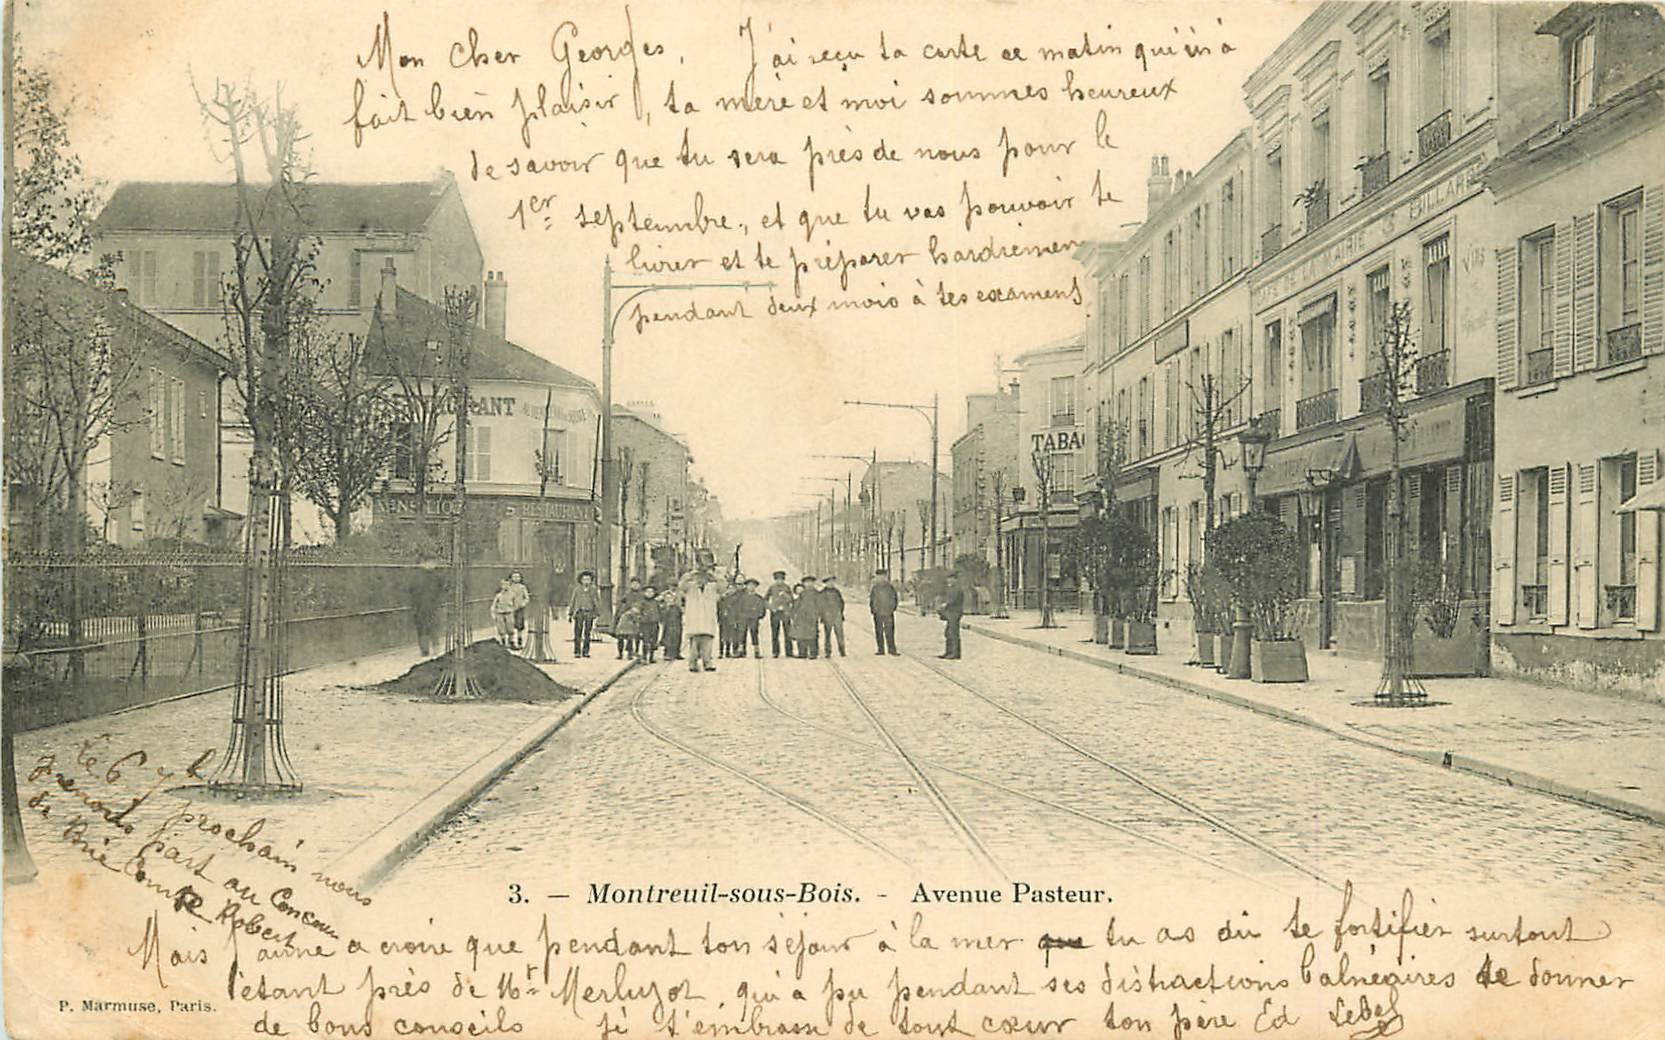 Mon cher Georges, J'ai reçu ta carte ce matin qui m'a
fait bien plaisir, ta mère et moi sommes heureux
de savoir que tu sera près de nous pour le
1er septembre, et que tu vas pouvoir te
livrer et te préparer hardiemen
pendant deux mois à tes examens
RESTAURANT
RESTAURANT
TABA
DE LA MAIRIE
BILLARD
VINS
Le 6 7b prochain nous
prenons part au Concour
de Brie Comte Robert
3. — Montreuil-sous-Bois. - Avenue Pasteur.
Mais j'aime a croire que pendant ton séjour à la mer que tu as dû te fortifier surtout
étant près de Mr Merluzot, qui a pu pendant ses distractions balnéaires te donner
de bons conseils je t'embrasse de tout cœur ton père Ed Lebel
P. Marmuse, Paris.